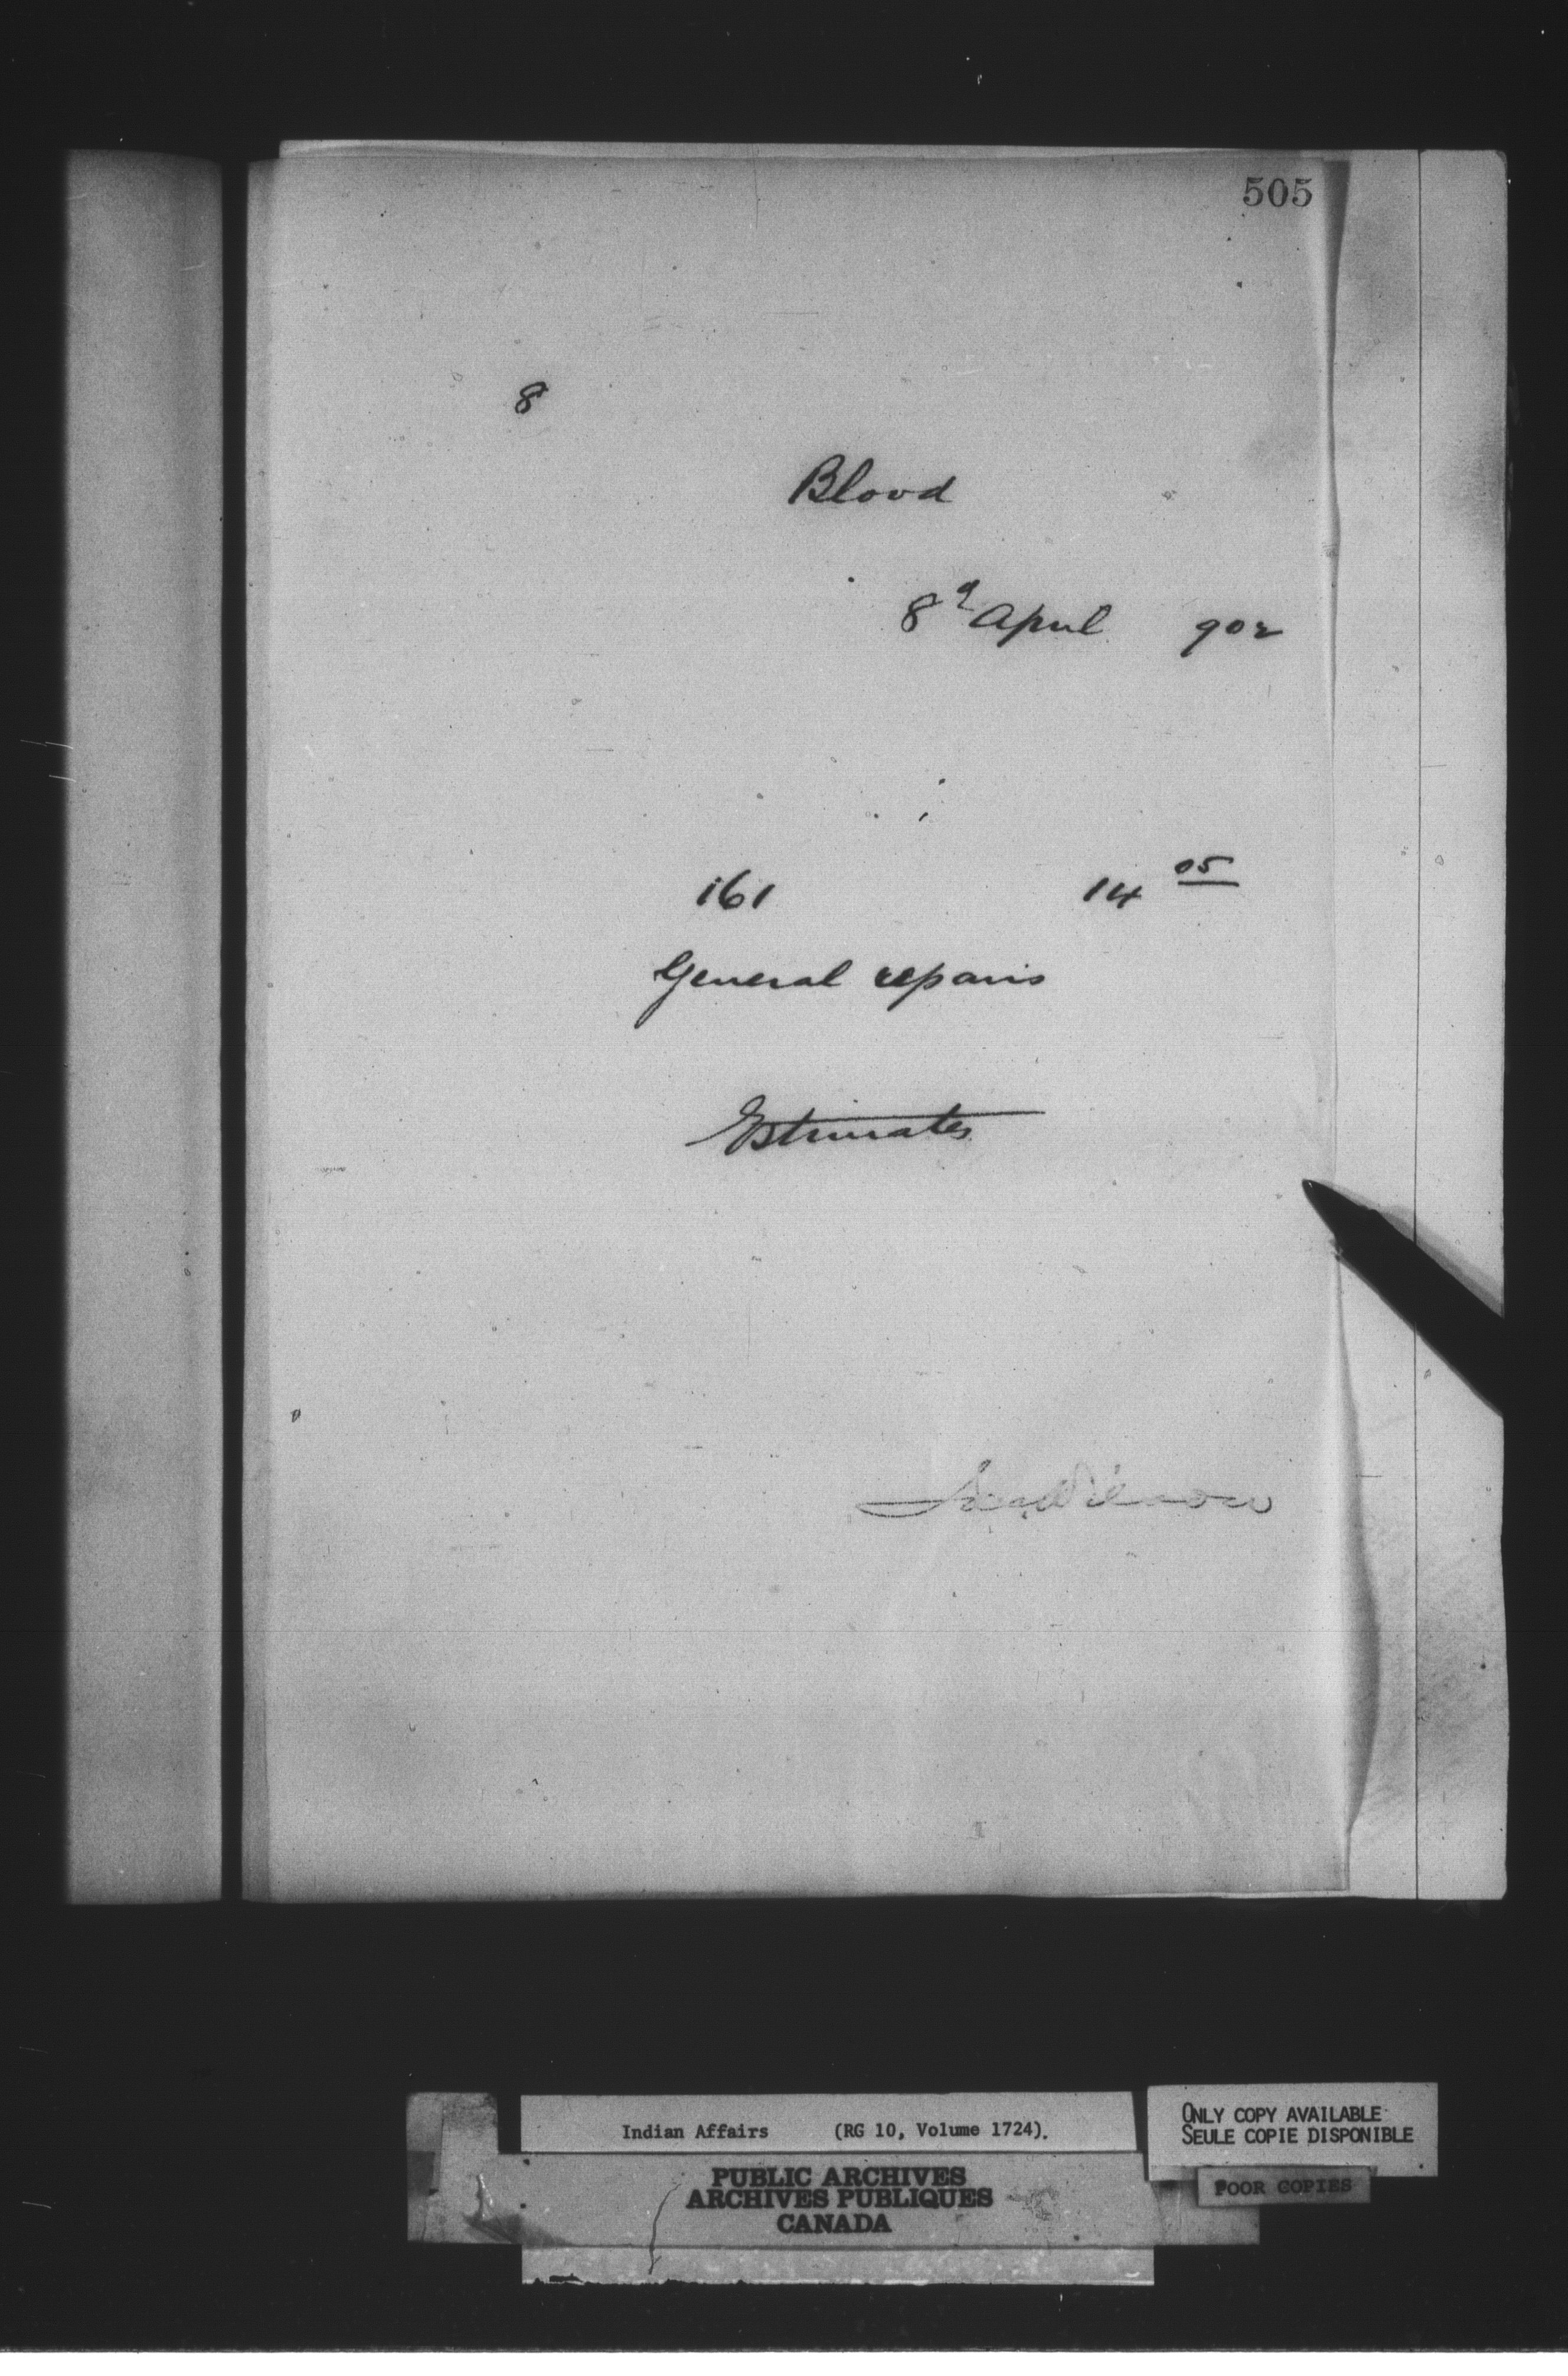 505
8
Blood
8th April 902
161 14 05
General repairs
Estimates
Jas Wilson
Indian Affairs (RG 10, Volume 1724).
PUBLIC ARCHIVES
ARCHIVES PUBLIQUES
CANADA
ONLY COPY AVAILABLE
SEULE COPIE DISPONIBLE
POOR COPIES